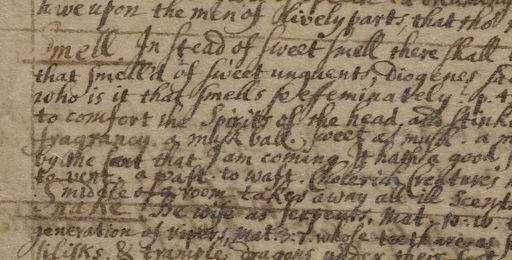 upon the men of lively parts, that tho
Smell. In stead of sweet smell there shall
that smell'd of sweet unguents, Diogenes
who is it that smells so effeminately. p. 4
to comfort the Spirits of the head and
fragrancy. a musk ball. sweet as musk. a
by the that I am coming. It hath a good
to vent. a past. to waft. Cholerick Creatures
middle of a room takes away all ill Scent
Snake. Be wise as serpents. Mat. 10. 16.
generation of vipers, Mat. 3. 7. whose teeth are as
& trample dragons under their feet